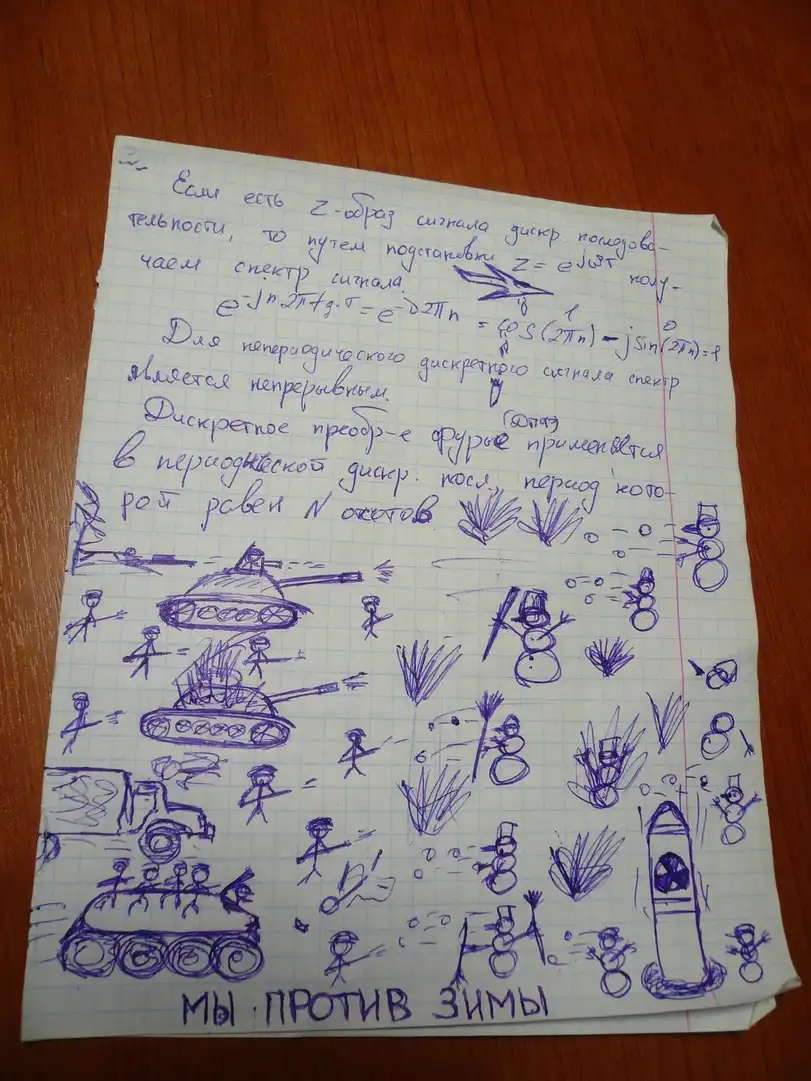 Если есть z-образ сигнала дискр. последова-
тельности, то путем подстановки z = e^jωT полу-
чаем спектр сигнала.
e^-jn2πfд·T = e^-j2πn = cos(2πn) - j sin(2πn) = 1
1 0
Для непериодического дискретного сигнала спектр
является непрерывным.
(ДПФ)
Дискретное преобр-е фурье применяется
в периодической дискр. посл, период кото-
рой равен N отсчетов
МЫ ПРОТИВ ЗИМЫ